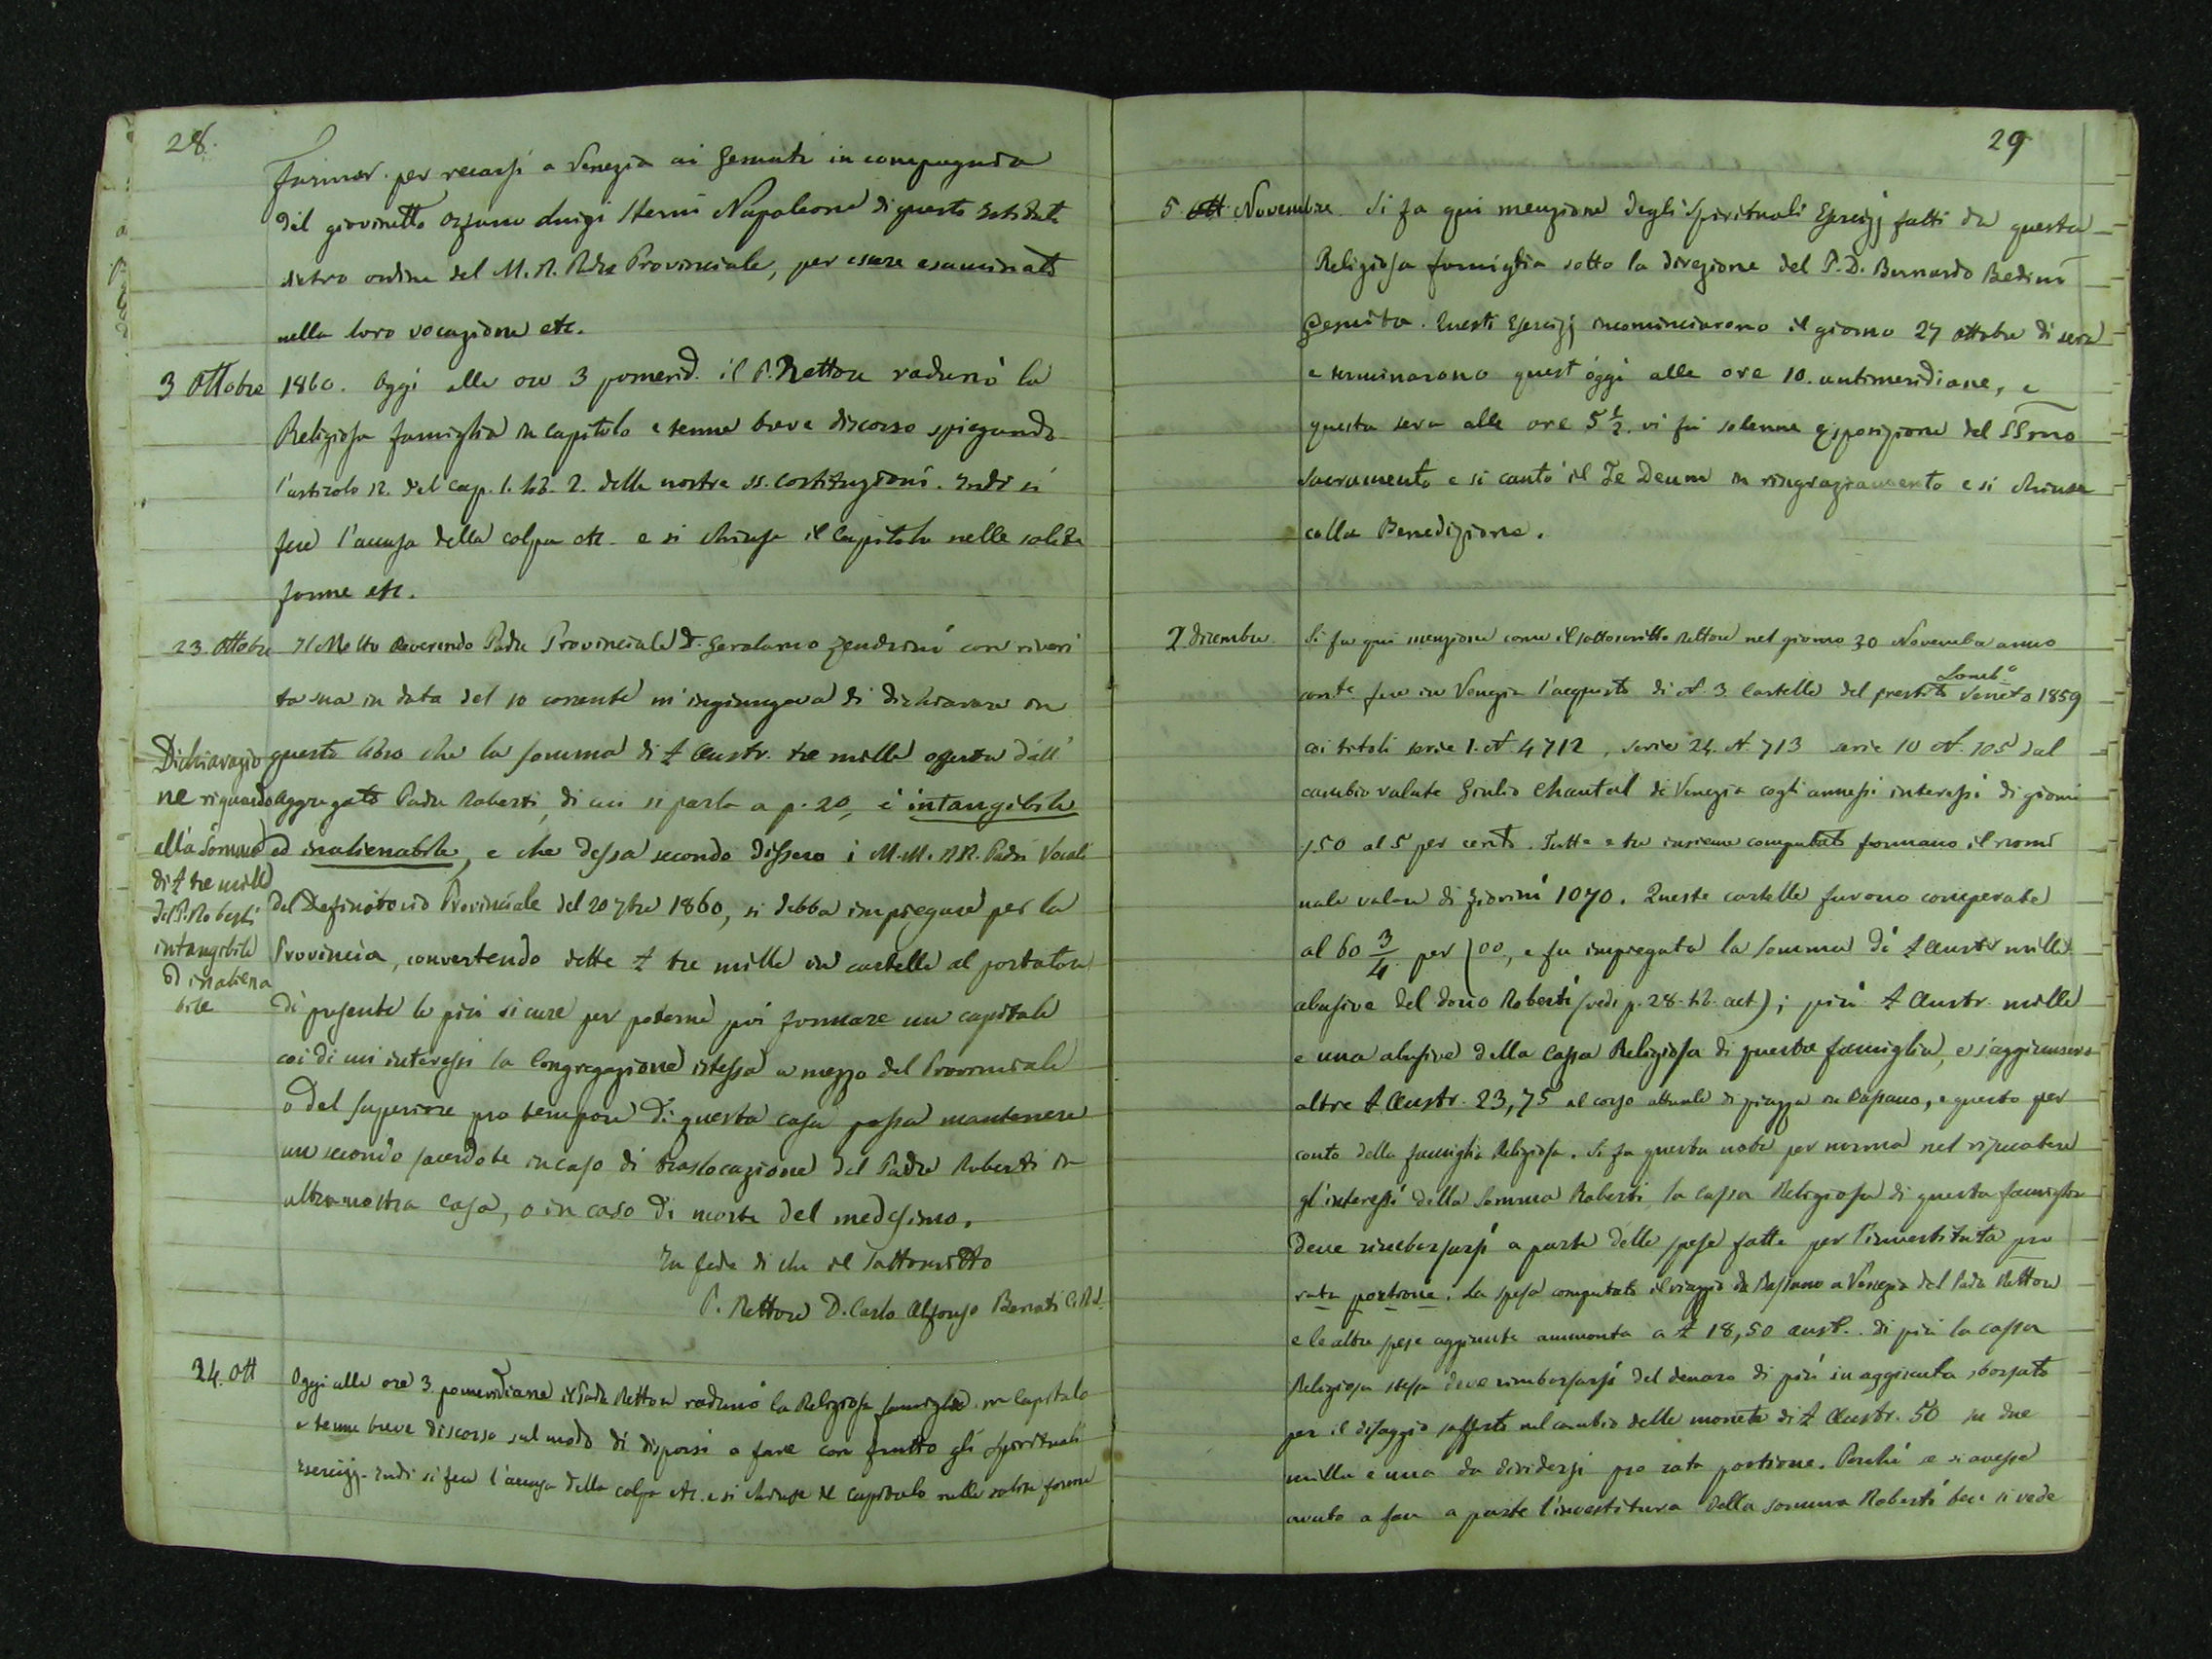 28.
per recarsi a Venezia ai Gesuiti in compagnia
del giovinetto orfano Luigi Sterni Napoleone di questo Istituto
dietro ordine del M. R. Pdre Provinciale, per essere esaminati
nella loro vocazione etc.
3 Ottobre 1860. Oggi alle ore 3 pomerid. il P. Rettore radunò la
Religiosa famiglia in capitolo e tenne breve discorso spiegando
l'articolo 12. del cap. 1. lib. 2. delle nostre SS. costituzioni. Indi si
fece l'accusa della colpa etc. e si chiuse il Capitolo nelle solite
forme etc.
23. Ottobre Il Molto Reverendo Padre Provinciale D. Gerolamo Zendrini con riveri
ta sua in data del 10 corrente m'ingiungeva di dichiarare in
questo libro che la somma di £ Austr. tre mille offerta dall'
aggregato Padre Roberti, di cui si parla a p. 20, è intangibile
ed inalienabile, e che dessa secondo dissero i M.M. RR. Padri Vocali
del Definitorio Provinciale del 20 7bre 1860, si debba impiegare per la
Provincia, convertendo dette £ tre mille in cartelle al portatore
di presente le più sicure per poterne poi formare un capitale
coi di cui interessi la Congregazione istessa a mezzo del Provinciale
o del Superiore pro tempore di questa casa possa mantenere
un secondo sacerdote in caso di traslocazione del Padre Roberti in
altra nostra Casa, o in caso di morte del medesimo.
Dichiarazio
ne riguardo
alla Somma
di £ tre mille
del P. Roberti
intangibile
ed inaliena
bile
In fede di che il Sottoscritto
P. Rettore D. Carlo Alfonso Benati C.R.S.
24. Ott Oggi alle ore 3 pomeridiane il Padre Rettore radunò la Religiosa famiglia in Capitolo
e tenne breve discorso sul modo di disporsi a fare con frutto gli Spirituali
Esercizj. Indi si fece l'accusa della colpa etc. e si chiuse il Capitolo nelle solite forme
29
5 Ott Novembre. Si fa qui menzione degli Spirituali Esercizj fatti da questa
Religiosa famiglia sotto la direzione del P. D. Bernardo Bedini
Gesuita. Questi Esercizj incominciarono il giorno 27 ottobre di sera
e terminarono quest'oggi alle ore 10. antimeridiane, e
questa sera alle ore 5 1/2. vi fu solenne esposizione del SSmo
Sacramento e si cantò il Te Deum in ringraziamento e si chiuse
colla Benedizione.
2 dicembre. Si fa qui menzione come il sottoscritto Rettore nel giorno 30 Novembre anno
corrte fece in Venezia l'acquisto di N. 3 Cartelle del prestito Lombo Veneto 1859
coi titoli serie 1. N. 4712, serie 24. N. 713 serie 10 N. 105 dal
cambio valute Giulio Chantal di Venezia cogli annessi interessi di giorni
150 al 5 per cento. Tutte e tre insieme computate formano il nomi
nale valore di fiorini 1070. Queste cartelle furono comperate
al 60 3/4 per 100, e fu impiegata la somma di £ Austr mille
abusive del dono Roberti (vedi p. 28. lib. att); più £ Austr. mille
e una abusive della Cassa Religiosa di questa famiglia, e s'aggiunsero
altre £ Austr. 23,75 al corso attuale di piazza in Bassano, e questo per
conto della famiglia Religiosa. Si fa questa nota per norma nel
gl'interessi della Somma Roberti la Cassa Religiosa di questa famiglia
deve rimborsarsi a parte delle spese fatte per l'investitura pro
rata portione. La spesa computato il viaggio da Bassano a Venezia del Padre Rettore
e le altre spese aggiunte ammonta a £ 18,50 aust. di più la cassa
Religiosa stessa deve rimborsarsi del denaro di più in aggiunta sborsato
per il disaggio sofferto nel cambio delle monete di £ Austr. 50 su due
mille e una da dividersi pro rata portione. Perché se si avesse
avuto a fare a parte l'investitura della somma Roberti ben si vede